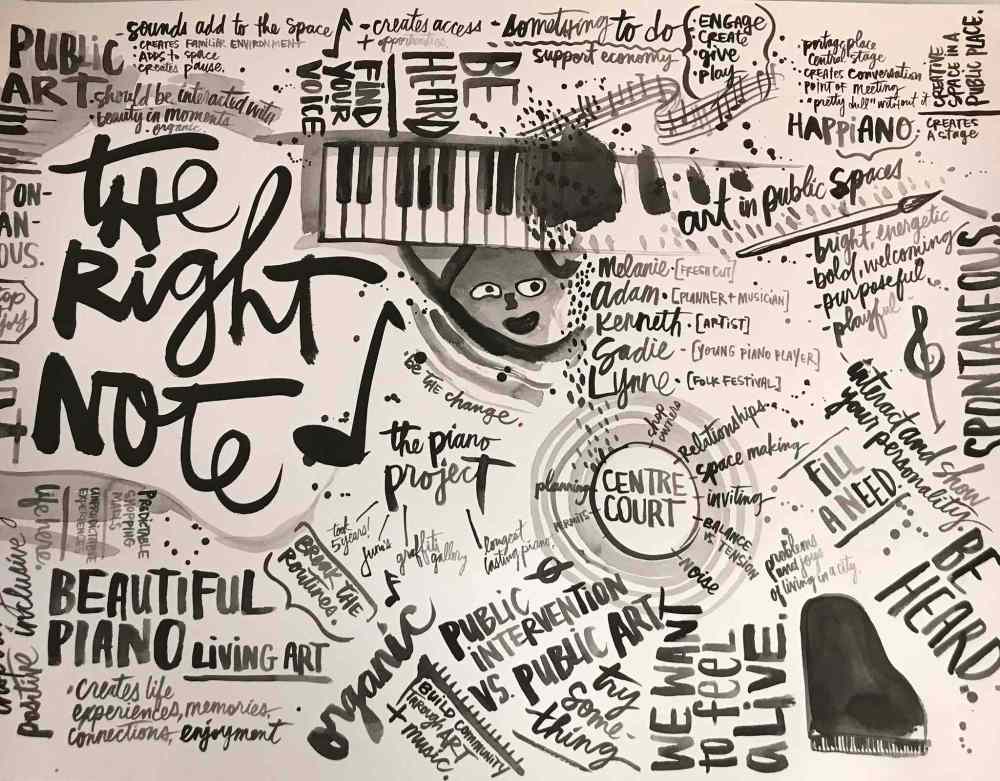 PUBLIC
ART
- sounds add to the space
• CREATES FAMILIAR ENVIRONMENT
• ADDS to space
• creates pause.
• should be interacted with
• beauty in moments
organic.
- creates access -
+ opportunities
something to do
support economy
• ENGAGE
• CREATE
• give
• play
FIND
YOUR
VOICE
BE
HEARD
• portage place
Central stage
• CREATES CONVERSATION
• POINT OF MEETING
• "pretty dull" without it
CREATIVE
SPACE IN A
PUBLIC PLACE.
HAPPiANO
• CREATES
A stage
PON-
AN-
OUS.
THE
Right
NOTE
art in public spaces
- bright, energetic
- bold, welcoming
- purposeful
- playful
SPONTANEOUS
melanie • [FRESH CUT]
adam • [PLANNER + MUSICIAN]
Kenneth • [ARTIST]
Sadie - [YOUNG PIANO PLAYER]
Lynne • [FOLK FESTIVAL]
be THE change.
the piano
project
took
5 years!
graffiti
gallery
longest
lasting piano.
CENTRE
COURT
shop
owners
Relationships
space making
inviting
BALANCE
vs. TENSION
NOISE
PERMITS
planning
interact and show
your personality.
FILL
A NEED
problems
and joys
of living in a city.
BE
HEARD
PREDICTABLE
SHOPPING
MALLS
EXPERIENCES
positive inclusive
BREAK THE
ROUTINES.
BEAUTIFUL
PIANO LIVING ART
• Creates life
experiences, memories,
connections, enjoyment
organic
BUILD COMMUNITY
THROUGH ART
+ music.
PUBLIC
INTERVENTION
VS. PUBLIC ART
try
some-
thing
WE WANT
to feel
aLIVE.